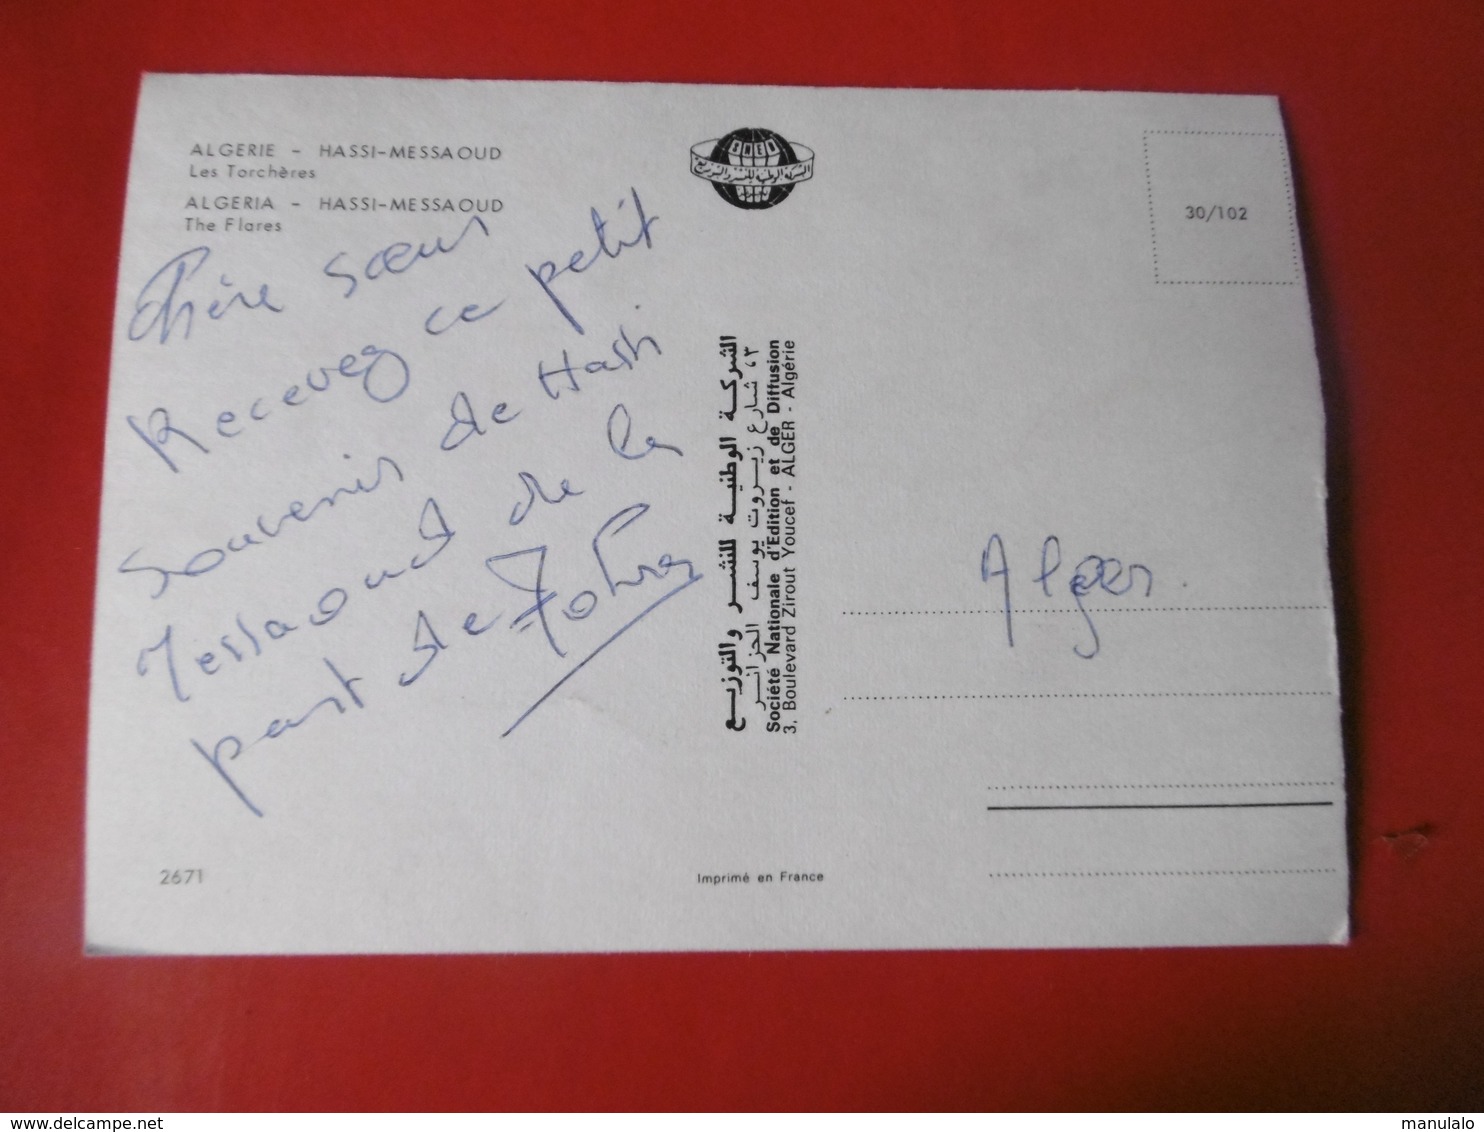 ALGERIE - HASSI-MESSAOUD
Les Torchères
ALGERIA - HASSI-MESSAOUD
The Flares
Chère sœur
Recevez ce petit
souvenir de Hassi
Messaoud de la
part de Zohra
2671
SNED
الشركة الوطنية للنشر والتوزيع
الشركة الوطنية للنشر والتوزيع
٣، شارع زيروت يوسف الجزائر
Société Nationale d'Edition et de Diffusion
3, Boulevard Zirout Youcef - ALGER - Algérie
Imprimé en France
30/102
Alger.
delcampe.net
manulalo